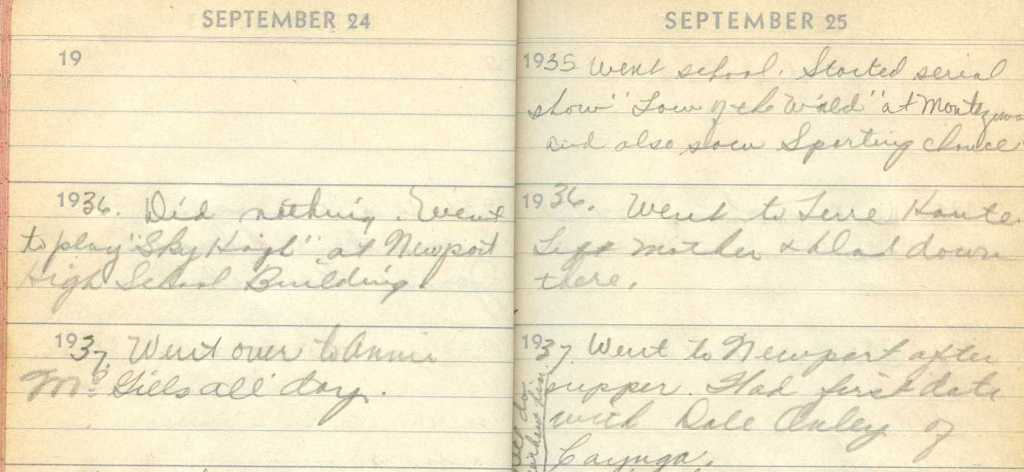 SEPTEMBER 24
19
1936. Did nothing. Went
to play "Sky High" at Newport
High School Building.
1937. Went over to Annie
Mc Gills all day.
SEPTEMBER 25
1935 Went school. Started serial
show "Law of the Wild" at Montezuma
and also saw Sporting chance
1936. Went to Terre Haute.
Left Mother & Dad down
there.
1937. Went to Newport after
supper. Had first date
with Dale of
Cayuga.